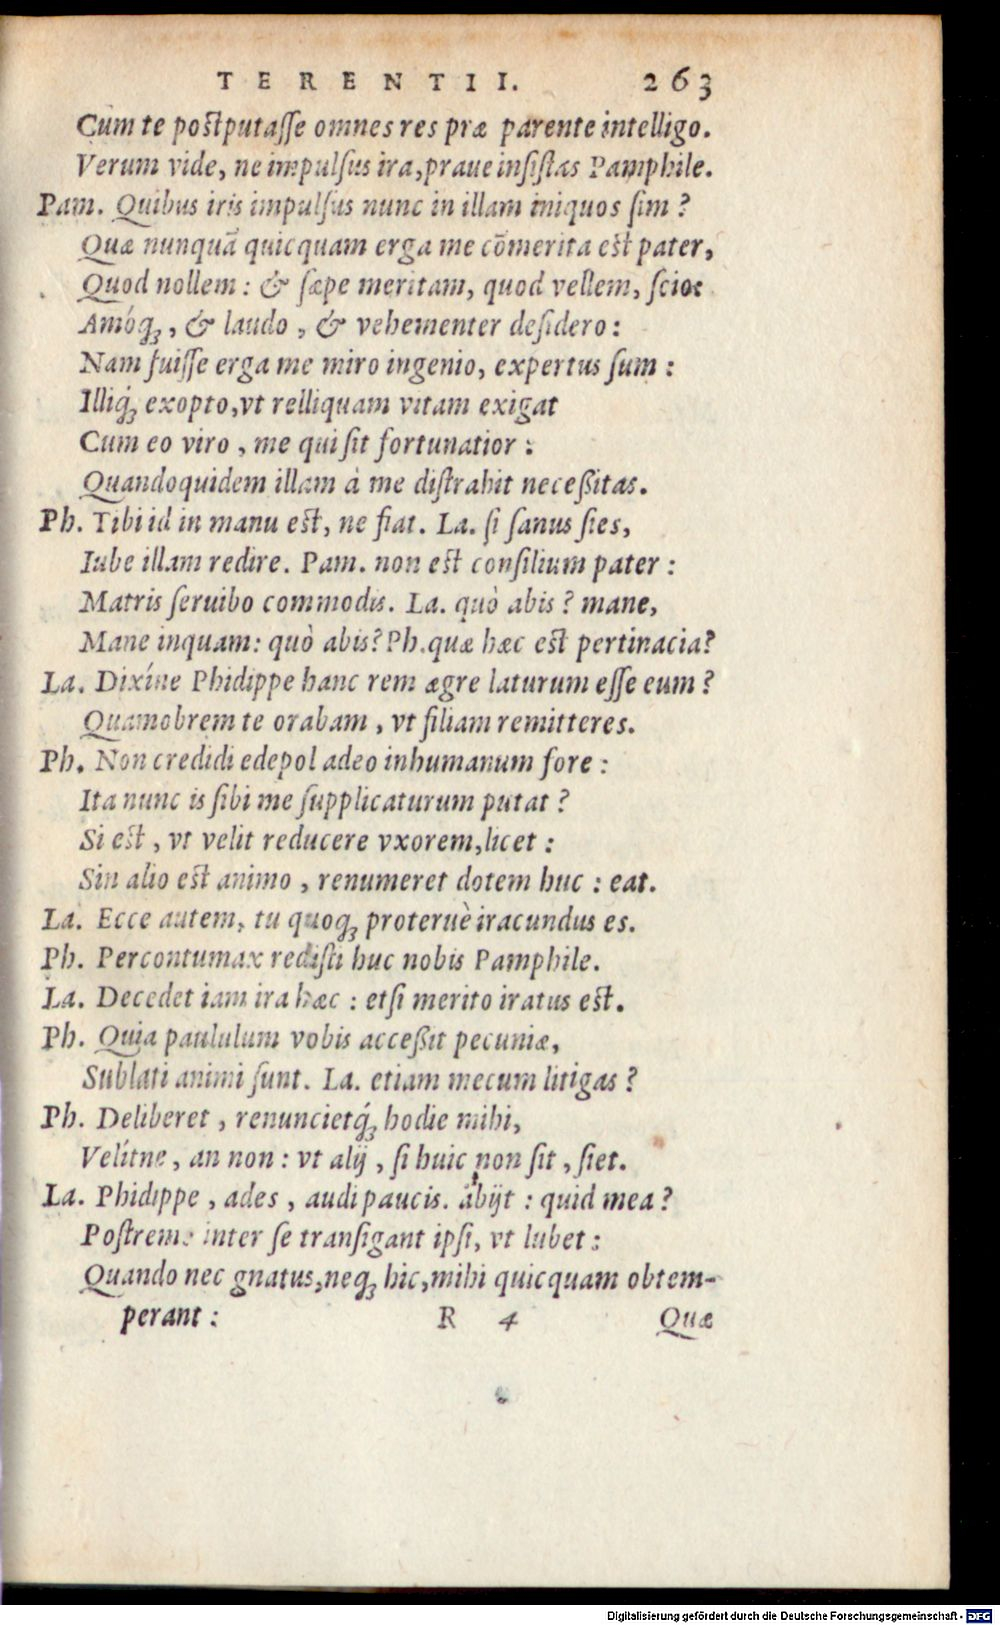 TERENTII. 263
Cum te postputasse omnes res præ parente intelligo.
Verum vide, ne impulsus ira, praue insistas Pamphile.
Pam. Quibus iris impulsus nunc in illam iniquos sim?
Quæ nunquā quicquam erga me cōmerita est pater,
Quod nollem: & sæpe meritam, quod vellem, scio:
Amóq;, & laudo, & vehementer desidero:
Nam fuisse erga me miro ingenio, expertus sum:
Illiq́; exopto, vt relliquam vitam exigat
Cum eo viro, me qui sit fortunatior:
Quandoquidem illam à me distrahit neceßitas.
Ph. Tibi id in manu est, ne fiat. La. si sanus sies,
Iube illam redire. Pam. non est consilium pater:
Matris seruibo commodis. La. quò abis? mane,
Mane inquam: quò abis? Ph. quæ hæc est pertinacia?
La. Dixíne Phidippe hanc rem ægre laturum esse eum?
Quamobrem te orabam, vt filiam remitteres.
Ph. Non credidi edepol adeo inhumanum fore:
Ita nunc is sibi me supplicaturum putat?
Si est, vt velit reducere vxorem, licet:
Sin alio est animo, renumeret dotem huc: eat.
La. Ecce autem, tu quoq; proteruè iracundus es.
Ph. Percontumax redisti huc nobis Pamphile.
La. Decedet iam ira hæc: etsi merito iratus est.
Ph. Quia paululum vobis acceßit pecuniæ,
Sublati animi sunt. La. etiam mecum litigas?
Ph. Deliberet, renuncietq́; hodie mihi,
Velítne, an non: vt alij, si huic non sit, siet.
La. Phidippe, ades, audi paucis. abijt: quid mea?
Postremo inter se transigant ipsi, vt lubet:
Quando nec gnatus, neq; hic, mihi quicquam obtem-
perant: R 4 Quæ
Digitalisierung gefördert durch die Deutsche Forschungsgemeinschaft - DFG